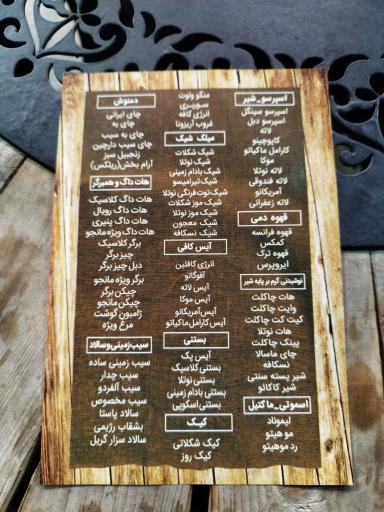 اسپرسو_شیر
اسپرسو سینگل
اسپرسو دبل
لاته
کاپوچینو
کارامل ماکیاتو
موکا
لاته نوتلا
لاته فندوقی
آمریکانو
لاته زعفرانی
قهوه دمی
قهوه فرانسه
کمکس
قهوه ترک
ایروپرس
نوشیدنی گرم بر پایه شیر
هات چاکلت
وایت چاکلت
کیت کت چاکلت
هات نوتلا
پینک چاکلت
چای ماسالا
نسکافه
شیر پسته سنتی
شیر کاکائو
اسموتی_ماکتیل
لیموناد
موهیتو
رد موهیتو
منگو ولوت
سوربری
انرژی کافه
غروب آریزونا
میلک شیک
شیک شکلات
شیک نوتلا
شیک بادام زمینی
شیک تیرامیسو
شیک توت فرنگی نوتلا
شیک موز شکلات
شیک موز نوتلا
شیک معجون
شیک نسکافه
آیس کافی
انرژی کافئین
آفوگاتو
آیس لاته
آیس موکا
آیس آمریکانو
آیس کارامل ماکیاتو
بستنی
آیس پک
بستنی کلاسیک
بستنی نوتلا
بستنی بادام زمینی
بستنی اسکوپی
کیک
کیک شکلاتی
کیک روز
دمنوش
چای ایرانی
چای به
چای به سیب
چای سیب دارچین
زنجبیل سبز
آرام بخش(ریلکس)
هات داگ و همبرگر
هات داگ کلاسیک
هات داگ رویال
هات داگ پنیری
هات داگ ویژه مانجو
برگر کلاسیک
چیز برگر
دبل چیز برگر
برگر ویژه مانجو
چیکن برگر
چیکن مانجو
ژامبون گوشت
مرغ ویژه
سیب‌زمینی‌وسالاد
سیب زمینی ساده
سیب چدار
سیب آلفردو
سیب مخصوص
سالاد پاستا
بشقاب رژیمی
سالاد سزار گریل